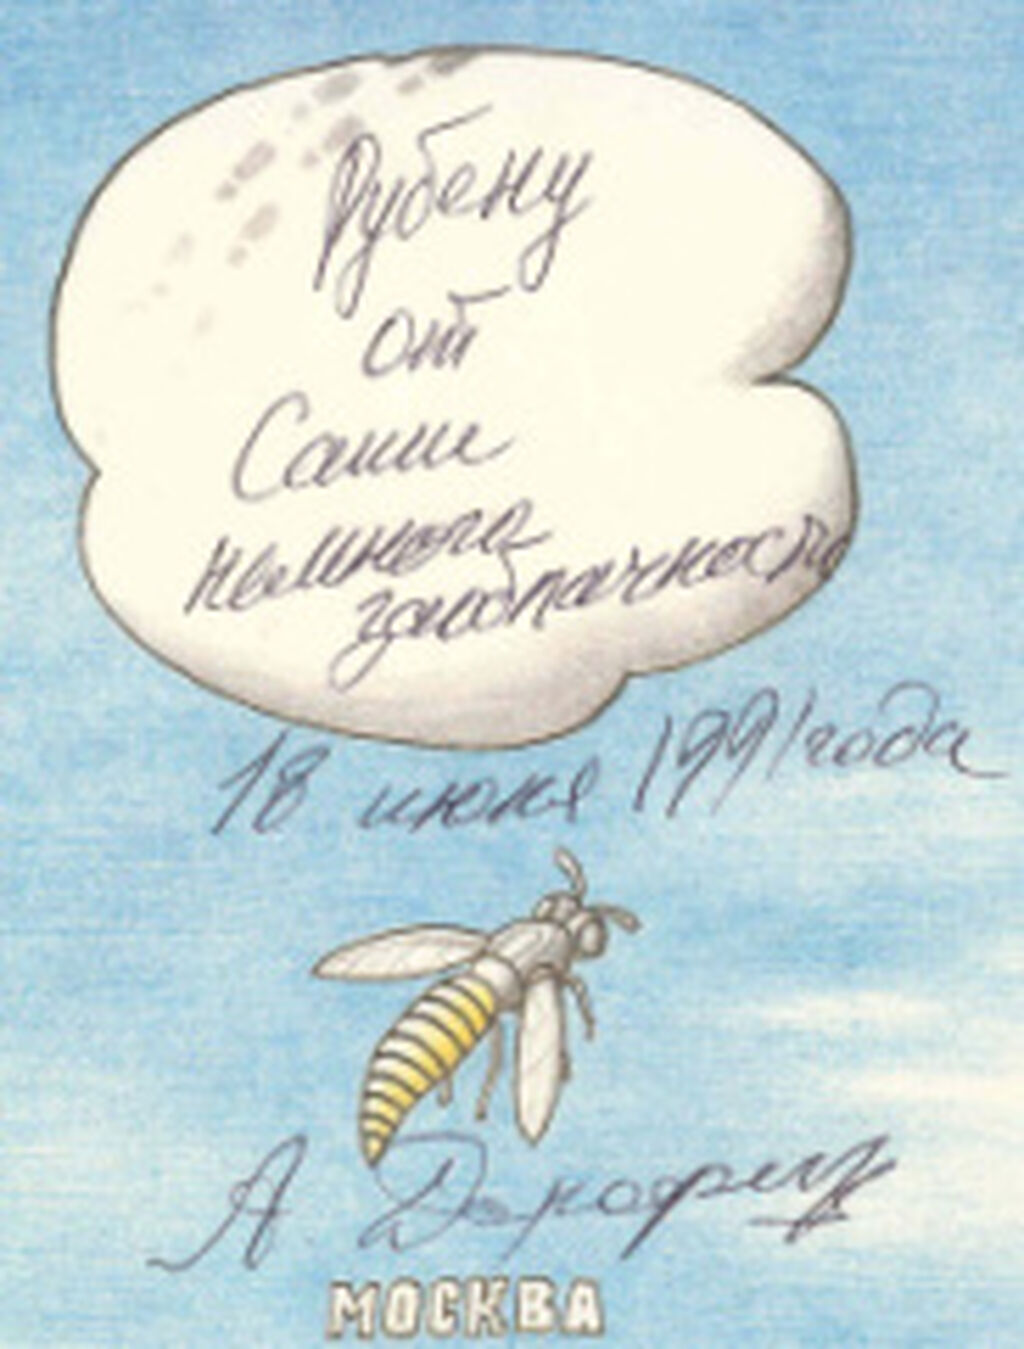 Рубену
от
Саши
немного
18 июня 1991 года
А. Дорофеев
МОСКВА